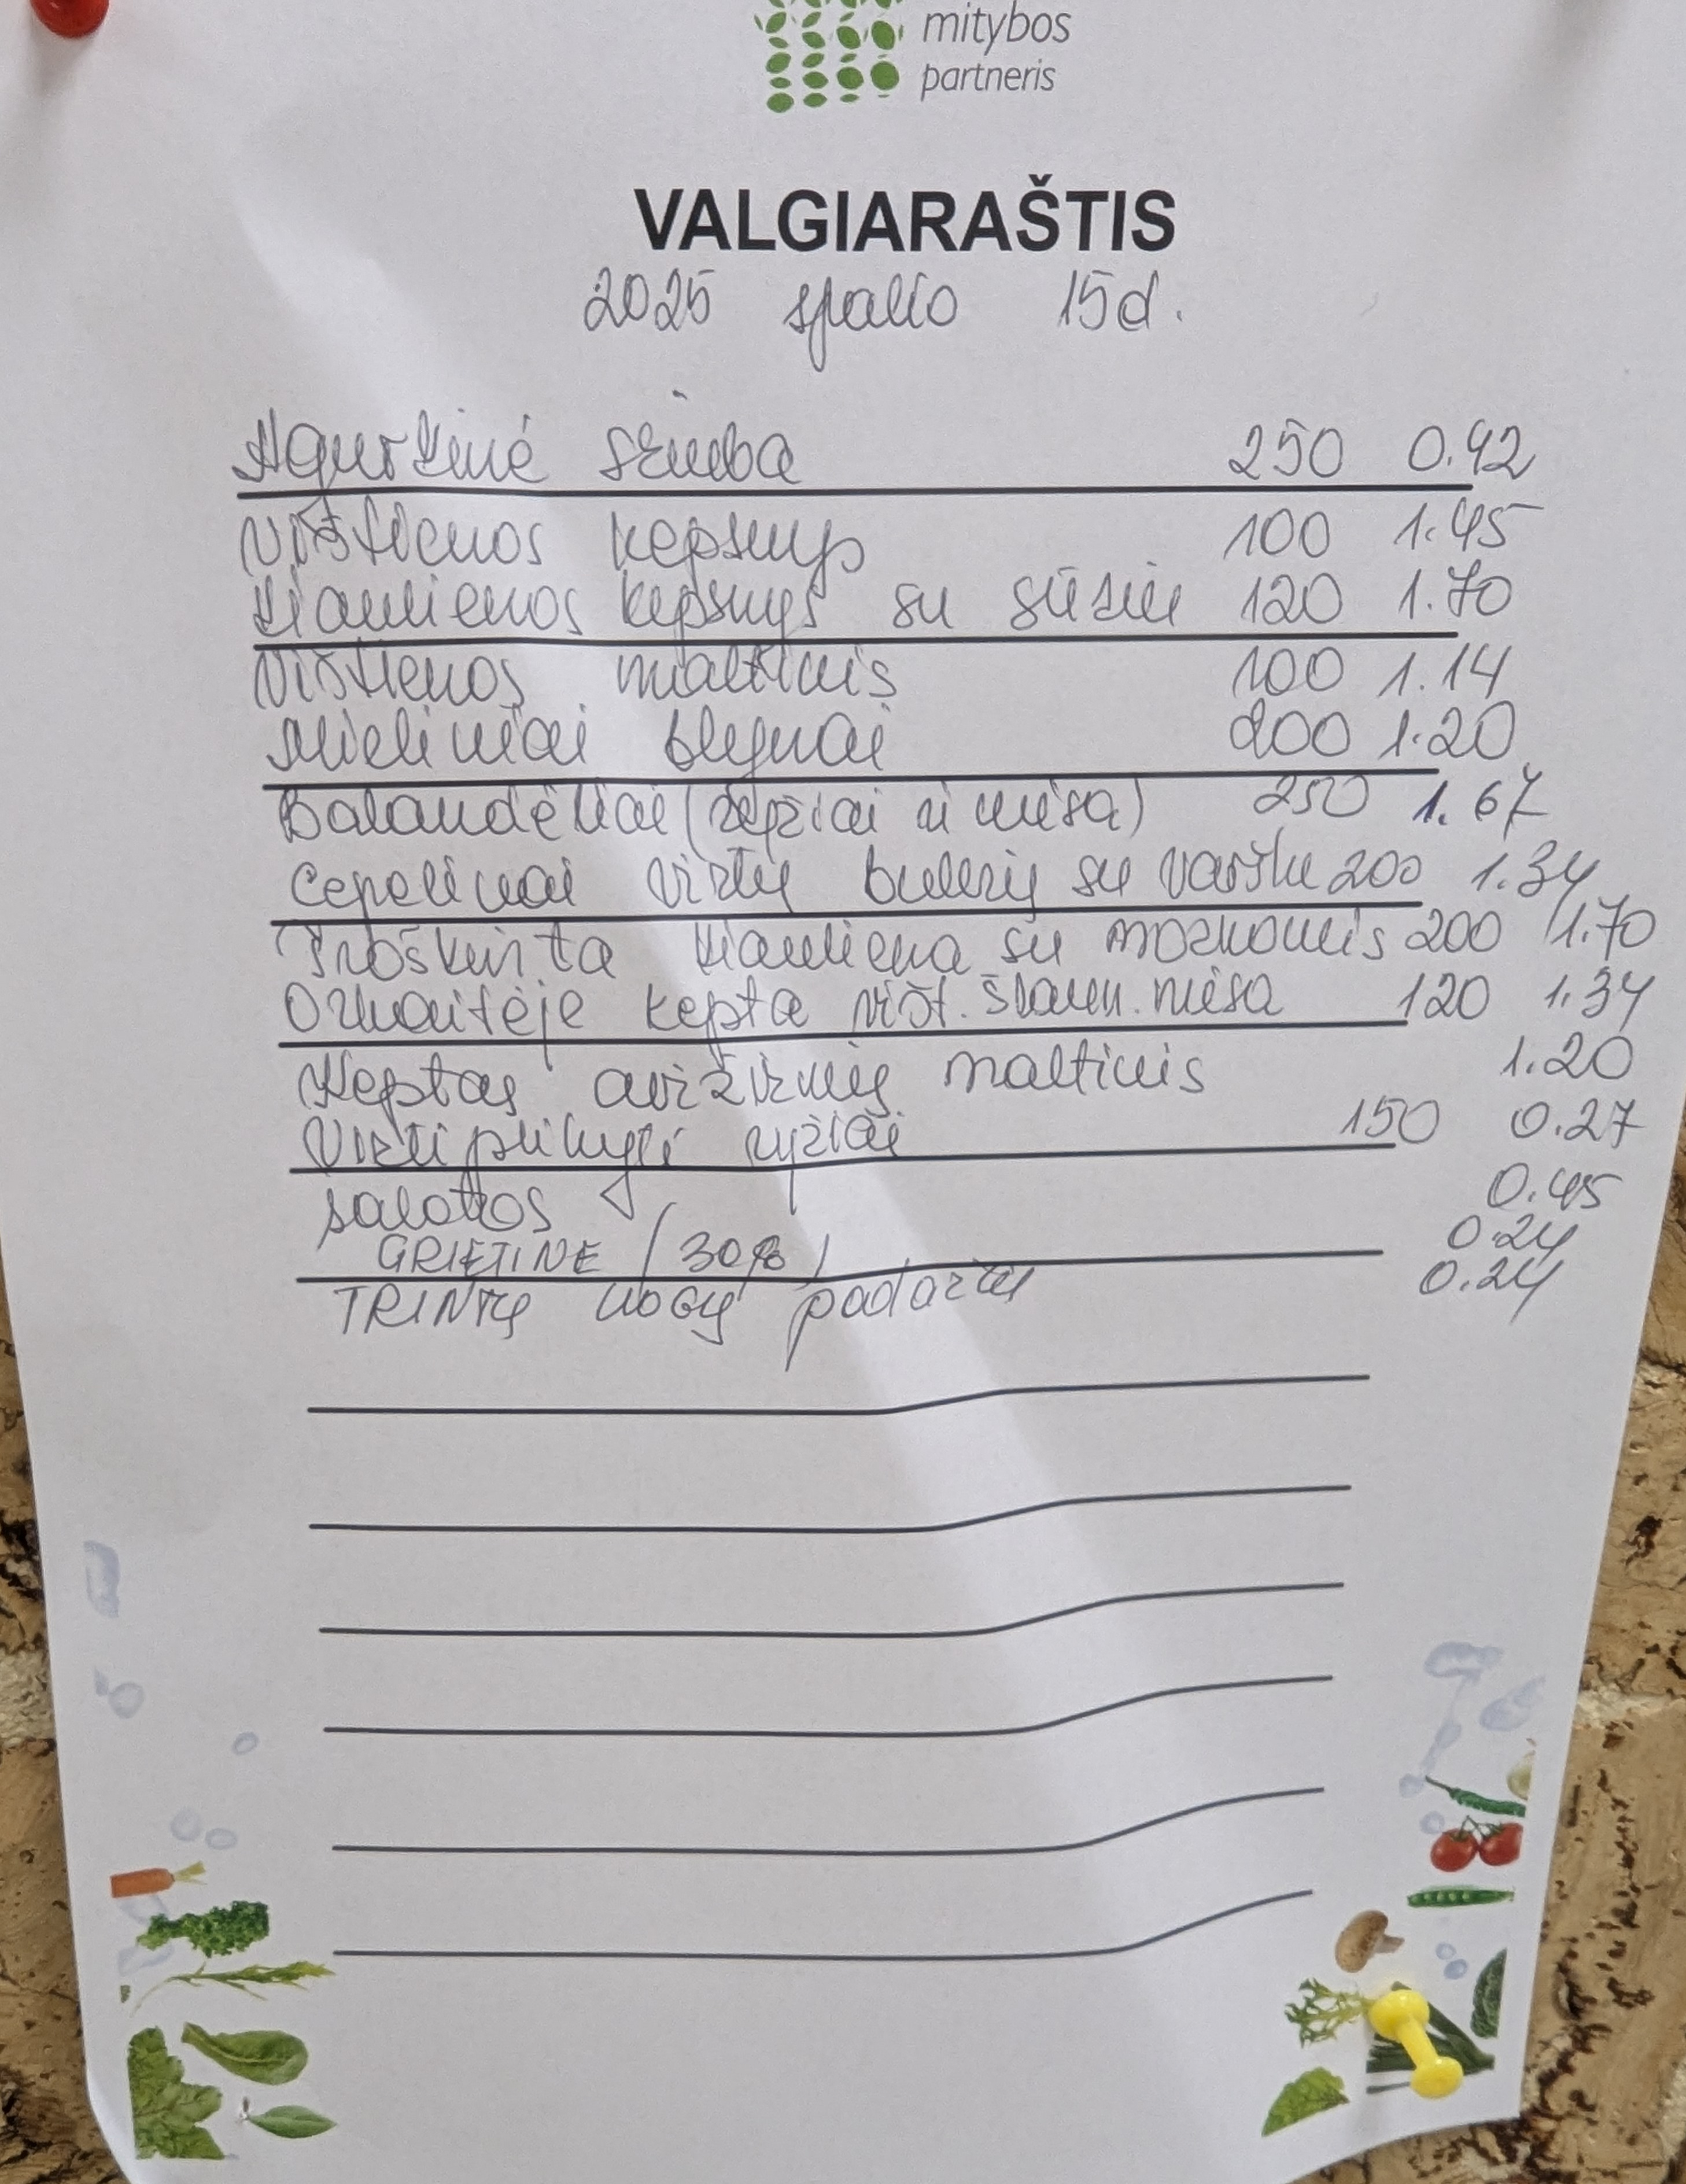 mitybos
partneris
VALGIARAŠTIS
2025 spalio 15d.
Agurkinė sriuba 250 0.92
Vištienos kepsnys 100 1.45
Kiaulienos kepsnys su sūriu 120 1.70
Vištienos maltinis 100 1.14
Mieliniai blynai 200 1.20
Balandėliai (ryžiai ir mėsa) 250 1.67
Cepelinai virtų bulvių su varške 200 1.34
Troškinta kiauliena su morkomis 200 1.70
Orkaitėje kepta višt. šlaun. mėsa 120 1.34
Keptas avižinių maltinis 1.20
Virti plikyti ryžiai 150 0.27
Salotos 0.45
GRIETINE (30%) 0.24
TRINTŲ UOGŲ padažas 0.24